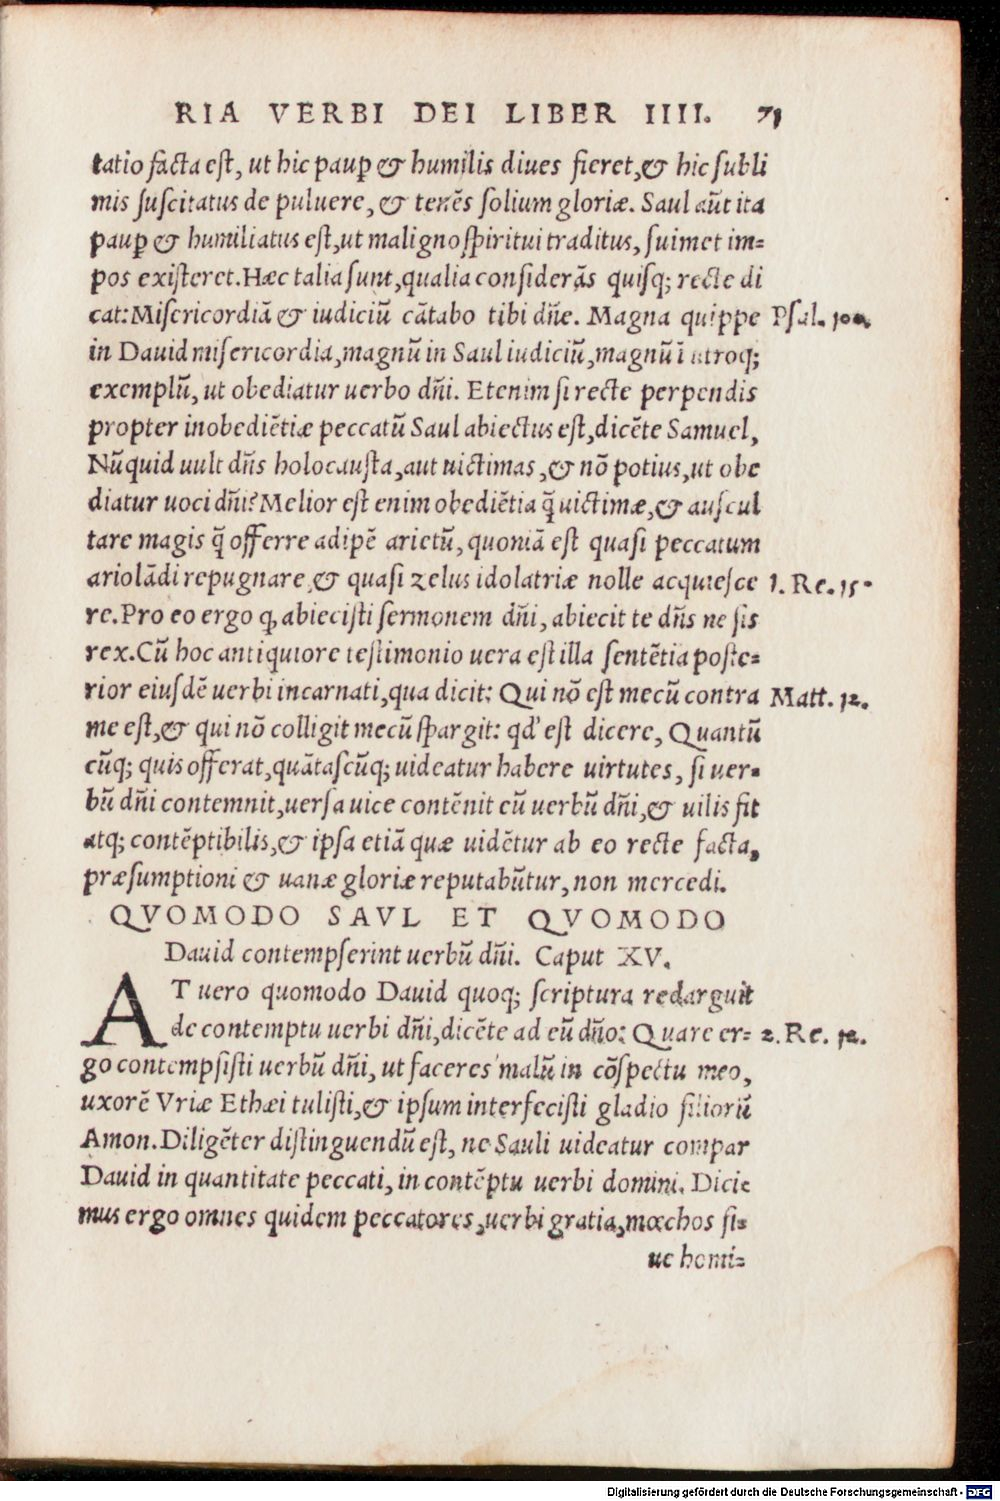 RIA VERBI DEI LIBER IIII. 71
tatio facta est, ut hic paup̱ & humilis diues fieret,& hic subli
mis suscitatus de puluere, & tenẽs solium gloriæ. Saul aũt ita
paup̱ & humiliatus est,ut maligno spiritui traditus, suimet im=
pos existeret.Hæc talia sunt,qualia considerãs quisq; recte di
cat:Misericordiã & iudiciũ cãtabo tibi dñe. Magna quippe Psal. 100.
in Dauid misericordia,magnũ in Saul iudiciũ,magnũ ĩ utroq;
exemplũ, ut obediatur uerbo dñi. Etenim si recte perpendis
propter inobediẽtiæ peccatũ Saul abiectus est,dicẽte Samuel,
Nũquid uult dñs holocausta,aut uictimas,& nõ potius,ut obe
diatur uoci dñi? Melior est enim obediẽtia q̃ uictimæ,& auscul
tare magis q̃ offerre adipẽ arietũ, quoniã est quasi peccatum
ariolãdi repugnare & quasi zelus idolatriæ nolle acquiesce 1. Re. 15.
re.Pro eo ergo q, abiecisti sermonem dñi, abiecit te dñs ne sis
rex.Cũ hoc antiquiore testimonio uera est illa sentẽtia poste=
rior eiusdẽ uerbi incarnati,qua dicit: Qui nõ est mecũ contra Matt. 12.
me est,& qui nõ colligit mecũ spargit: qd' est dicere, Quantũ
cũq; quis offerat,quãtascũq; uideatur habere uirtutes, si uer=
bũ dñi contemnit,uersa uice contẽnit eũ uerbũ dñi,& uilis fit
atq; contẽptibilis,& ipsa etiã quæ uidẽtur ab eo recte facta,
præsumptioni & uanæ gloriæ reputabũtur, non mercedi.
QVOMODO SAVL ET QVOMODO
Dauid contempserint uerbũ dñi. Caput XV.
AT uero quomodo Dauid quoq; scriptura redarguit
de contemptu uerbi dñi,dicẽte ad eũ dño: Quare er= 2. Re. 12.
go contempsisti uerbũ dñi, ut faceres malũ in cõspectu meo,
uxorẽ Vriæ Ethæi tulisti,& ipsum interfecisti gladio filiorũ
Amon.Diligẽter distinguendũ est, ne Sauli uideatur compar
Dauid in quantitate peccati, in contẽptu uerbi domini. Dici=
mus ergo omnes quidem peccatores,uerbi gratia,mœchos si=
ue homi=
Digitalisierung gefördert durch die Deutsche Forschungsgemeinschaft - DFG